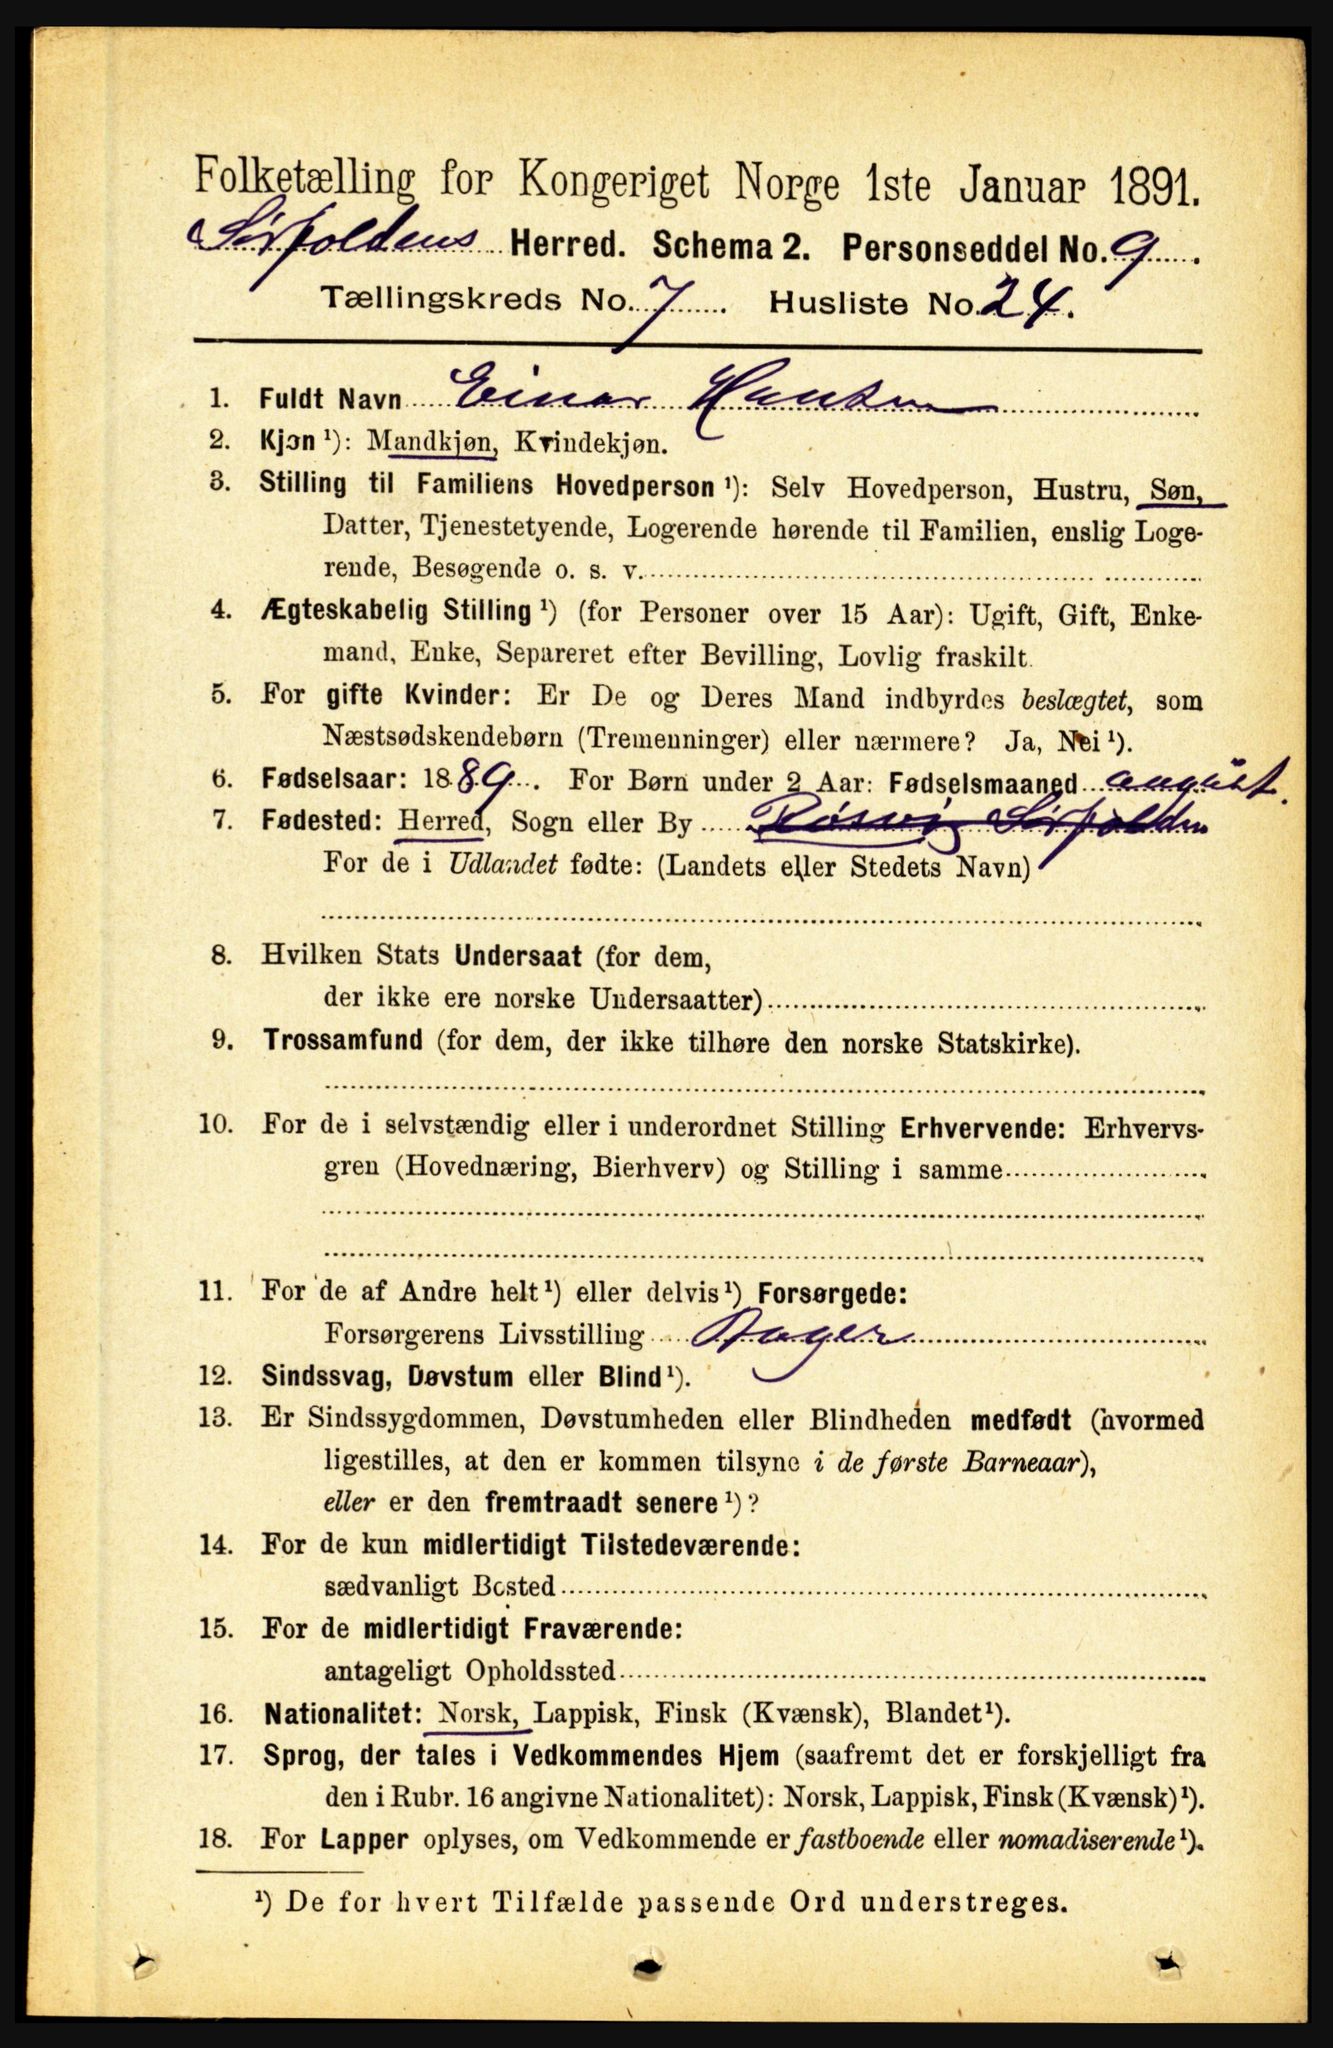 Folketælling for Kongeriget Norge 1ste Januar 1891.
Sørfoldens Herred. Schema 2. Personseddel No. 9.
Tællingskreds No. 7. Husliste No. 24.
1. Fuldt Navn Einar Hansen
2. Kjøn ¹): Mandkjøn, Kvindekjøn.
3. Stilling til Familiens Hovedperson ¹): Selv Hovedperson, Hustru, Søn,
Datter, Tjenestetyende, Logerende hørende til Familien, enslig Loge-
rende, Besøgende o. s. v.
4. Ægteskabelig Stilling ¹) (for Personer over 15 Aar): Ugift, Gift, Enke-
mand, Enke, Separeret efter Bevilling, Lovlig fraskilt.
5. For gifte Kvinder: Er De og Deres Mand indbyrdes beslægtet, som
Næstsødskendebørn (Tremenninger) eller nærmere? Ja, Nei ¹).
6. Fødselsaar: 1889. For Børn under 2 Aar: Fødselsmaaned august.
7. Fødested: Herred, Sogn eller By Røsvig Sørfolden
For de i Udlandet fødte: (Landets eller Stedets Navn)
8. Hvilken Stats Undersaat (for dem,
der ikke ere norske Undersaatter)
9. Trossamfund (for dem, der ikke tilhøre den norske Statskirke).
10. For de i selvstændig eller i underordnet Stilling Erhvervende: Erhvervs-
gren (Hovednæring, Bierhverv) og Stilling i samme
11. For de af Andre helt ¹) eller delvis ¹) Forsørgede:
Forsørgerens Livsstilling Bager
12. Sindssvag, Døvstum eller Blind ¹).
13. Er Sindssygdommen, Døvstumheden eller Blindheden medfødt (hvormed
ligestilles, at den er kommen tilsyne i de første Barneaar),
eller er den fremtraadt senere ¹)?
14. For de kun midlertidigt Tilstedeværende:
sædvanligt Bosted
15. For de midlertidigt Fraværende:
antageligt Opholdssted
16. Nationalitet: Norsk, Lappisk, Finsk (Kvænsk), Blandet ¹).
17. Sprog, der tales i Vedkommendes Hjem (saafremt det er forskjelligt fra
den i Rubr. 16 angivne Nationalitet): Norsk, Lappisk, Finsk (Kvænsk) ¹).
18. For Lapper oplyses, om Vedkommende er fastboende eller nomadiserende ¹).
¹) De for hvert Tilfælde passende Ord understreges.